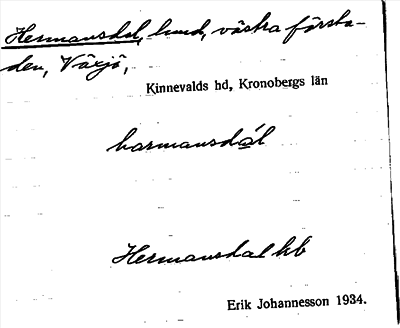 Hermansdal, lund, västra första-
den, Växjö,
Kinnevalds hd, Kronobergs län
harmansdál
Hermansdal hb
Erik Johannesson 1934.